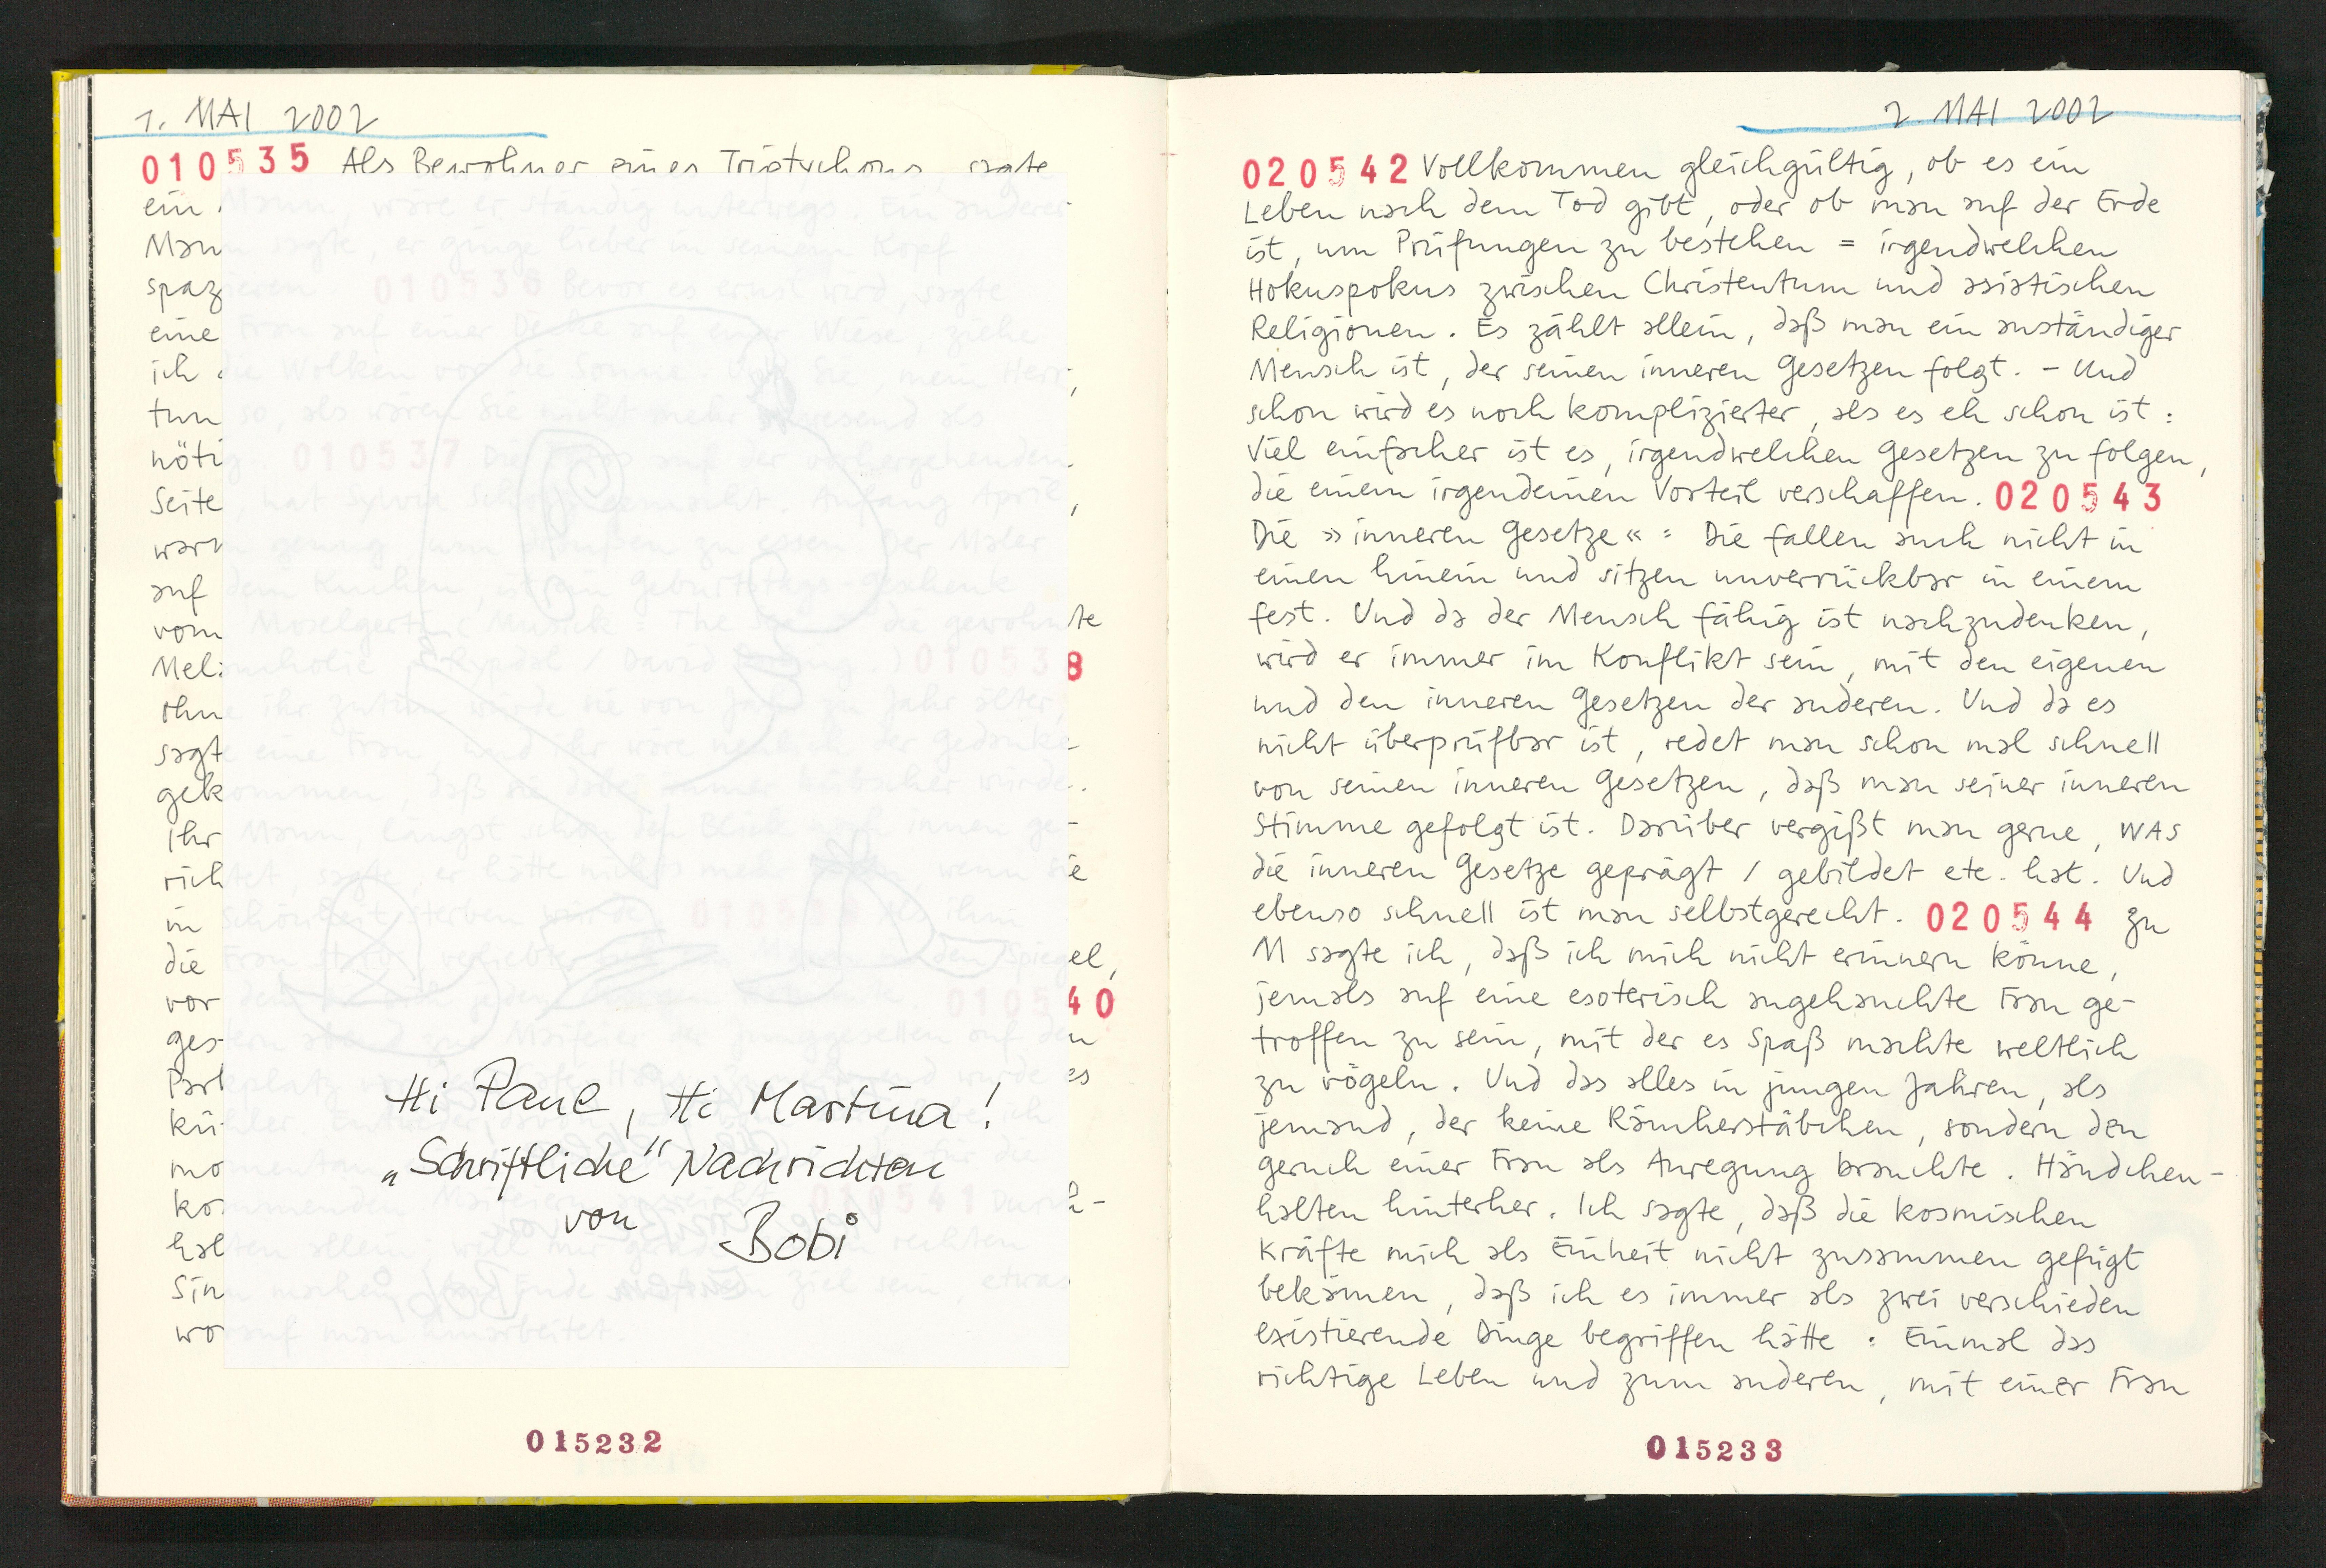 1. MAI 2002
010535 Als Bewohner eines Triptychons, sagte
ein Mann, wäre er ständig unterwegs. Ein anderer
Mann sagte, er ginge lieber in seinem Kopf
spazieren. 010536 Bevor es ernst wird, sagte
eine Frau auf einer Decke auf einer Wiese, ziehe
ich die Wolken vor die Sonne. Und Sie, mein Herr,
tun so, als wären Sie nicht mehr anwesend als
nötig. 010537 Die Fotos auf der vorhergehenden
Seite, hat Sylvia gemacht. Anfang April,
warm genug, um draußen zu essen. Der Maler
auf dem Kuchen, ist ein Geburtstags-Geschenk
vom Moselgert. (Musik: The Sea, die gewohnte
Melancholie, Rypdal / David 010538
Ohne ihr Zutun würde sie von Jahr zu Jahr älter,
sagte eine Frau, und ihr wäre neulich der Gedanke
gekommen, daß sie dabei immer hübscher würde.
Ihr Mann, längst schon den Blick nach innen ge-
richtet, sagte, er hätte nichts wenn sie
in Schönheit sterben würde.
die Frau verliebter den Spiegel,
vor dem 010540
gestern abend Maifeier der Junggesellen auf den
Parkplatz wurde es
kühler.
momentan die
kommenden 010541 Durch-
halten allein, will mir rechten
Sinn machen. Ende Ziel sein, etwas
worauf man hinarbeitet.
Hi Paul, Hi Martina!
„Schriftliche“ Nachrichten
von Bobi
015232
2. MAI 2002
020542 Vollkommen gleichgültig, ob es ein
Leben nach dem Tod gibt, oder ob man auf der Erde
ist, um Prüfungen zu bestehen = irgendwelchen
Hokuspokus zwischen Christentum und asiatischen
Religionen. Es zählt allein, daß man ein anständiger
Mensch ist, der seinen inneren Gesetzen folgt. – Und
schon wird es noch komplizierter, als es eh schon ist:
Viel einfacher ist es, irgendwelchen Gesetzen zu folgen,
die einem irgendeinen Vorteil verschaffen. 020543
Die »inneren Gesetze«: Die fallen auch nicht in
einen hinein und sitzen unverrückbar in einem
fest. Und da der Mensch fähig ist nachzudenken,
wird er immer im Konflikt sein, mit den eigenen
und den inneren Gesetzen der anderen. Und da es
nicht überprüfbar ist, redet man schon mal schnell
von seinen inneren Gesetzen, daß man seiner inneren
Stimme gefolgt ist. Darüber vergißt man gerne, WAS
die inneren Gesetze geprägt / gebildet etc. hat. Und
ebenso schnell ist man selbstgerecht. 020544 Zu
M sagte ich, daß ich mich nicht erinnern könne,
jemals auf eine esoterisch angehauchte Frau ge-
troffen zu sein, mit der es Spaß machte weltlich
zu vögeln. Und das alles in jungen Jahren, als
jemand, der keine Räucherstäbchen, sondern den
Geruch einer Frau als Anregung brauchte. Händchen-
halten hinterher. Ich sagte, daß die kosmischen
Kräfte mich als Einheit nicht zusammen gefügt
bekämen, daß ich es immer als zwei verschieden
existierende Dinge begriffen hätte: Einmal das
richtige Leben und zum anderen, mit einer Frau
015233